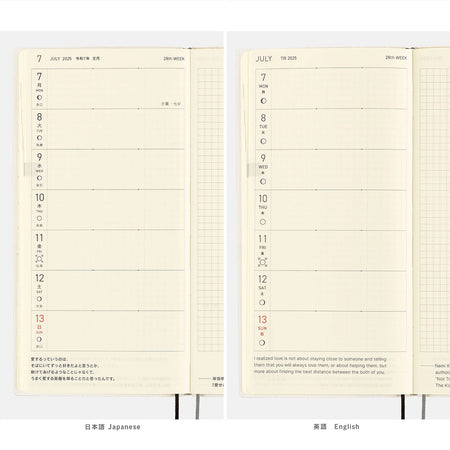 7 JULY 2025 令和7年 文月 28th WEEK
7
月
MON
小暑・七夕
8
火
TUE
9
水
WED
10
木
THU
11
金
FRI
12
土
SAT
13
日
SUN
愛するっていうのは、
そばにいてずっと好きだよと思うとか、
助けてあげるようなことじゃなくて、
うまく愛する距離を探ることだと思ったんです。
JULY 28th WEEK
7
MON
月
8
TUE
火
9
WED
水
10
THU
木
11
FRI
金
12
SAT
土
13
SUN
日
I realized love is not about staying close to someone and telling
them that you will always love them, or about helping them, but
more about finding the best distance between the both of you.
日本語 Japanese
英語 English